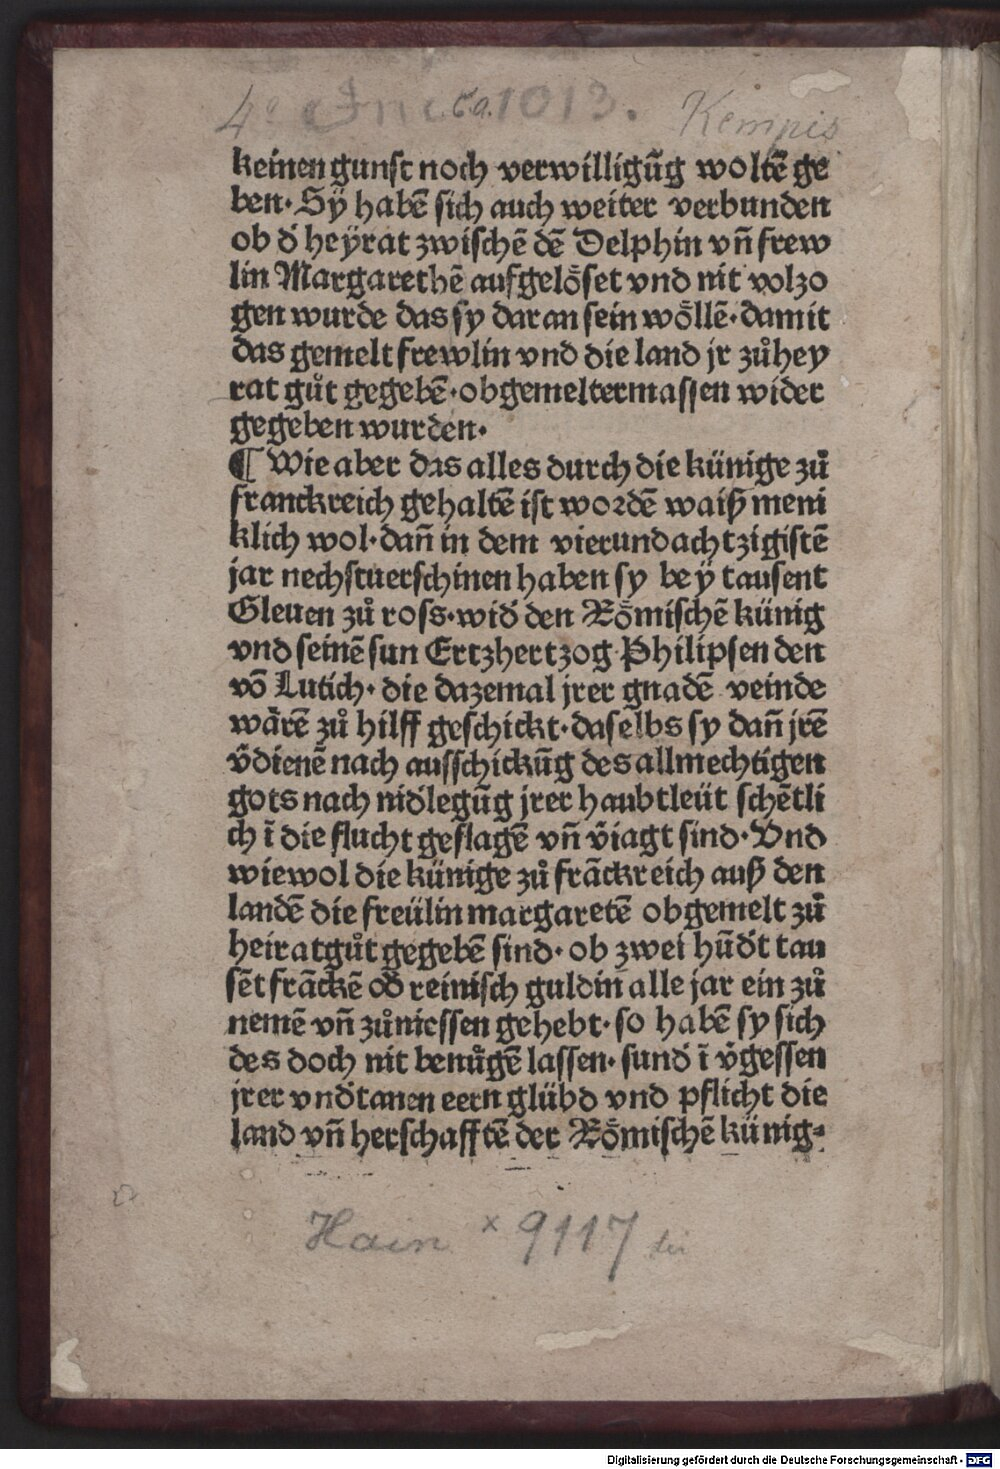 4° Inc. c. a. 1013. Kempis
keinen gunst noch verwilligūg woltē ge
ben· Sÿ habē sich auch weiter verbunden
ob d̕ heÿrat zwischē dē Delphin vn̄ frew
lin Margarethē aufgelöset vnd nit volzo
gen wurde das sy dar an sein wöllē· damit
das gemelt frewlin vnd die land jr zůhey
rat gůt gegebē· obgemeltermassen wider
gegeben wurden·
¶ Wie aber das alles durch die künige zů
franckreich gehaltē ist wordē waiß meni
klich wol· dan̄ in dem vierundachtzigistē
jar nechstuerschinen haben sy beÿ tausent
Gleuen zů ross· wid̕ den Römischē künig
vnd seinē sun Ertzhertzog Philipsen den
vō Lutich· die dazemal jrer gnadē veinde
wärē zů hilff geschickt· daselbs sy dan̄ jrē
v̄dienē nach ausschickūg des allmechtigen
gots nach nid̕legūg jrer haubtleüt schētli
ch ī die flucht geslagē vn̄ v̄iagt sind· Vnd
wiewol die künige zů frāckreich auß den
landē die freülin margaretē obgemelt zů
heiratgůt gegebē sind· ob zwei hūd̕t tau
sēt frāckē od̕ reinisch guldin̄ alle jar ein zů
nemē vn̄ zůniessen gehebt· so habē sy sich
des doch nit benůgē lassen· sund̕ ī v̄gessen
jrer vnd̕tanen eern glübd vnd pflicht die
land vn̄ herschafftē der Römischē künig⸗
Hain × 9117
Digitalisierung gefördert durch die Deutsche Forschungsgemeinschaft - DFG